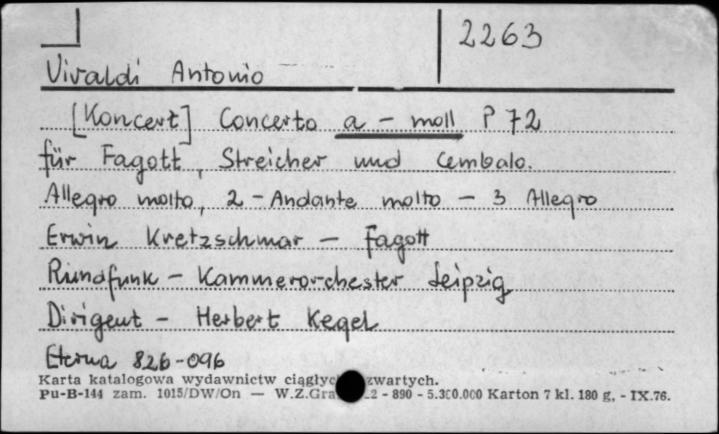 2263
Vivaldi Antonio
[Koncert] Concerto a - moll P 72
für Fagott, Streicher und Cembalo.
Allegro molto, 2 - Andante molto - 3 Allegro
Erwin Kretzschmar - Fagott
Rundfunk - Kammerorchester Leipzig
Dirigent - Herbert Kegel
Eterna 826-096
Karta katalogowa wydawnictw zwartych.
Pu-B-144 zam. 1015/DW/On — - 890 - 5.300.000 Karton 7 kl. 180 g, - IX.76.